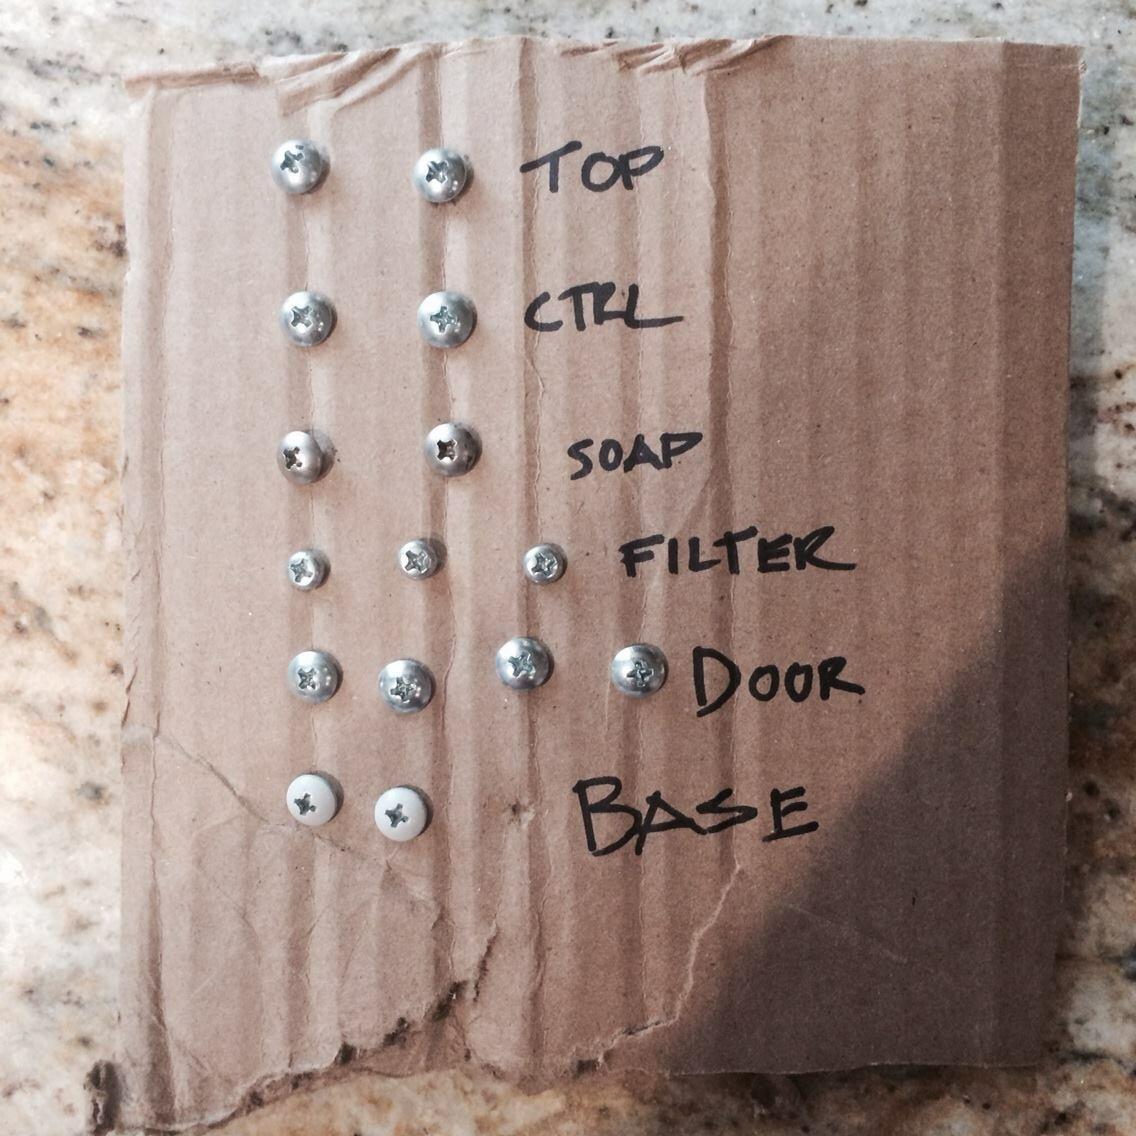 TOP
CTRL
SOAP
FILTER
DOOR
BASE